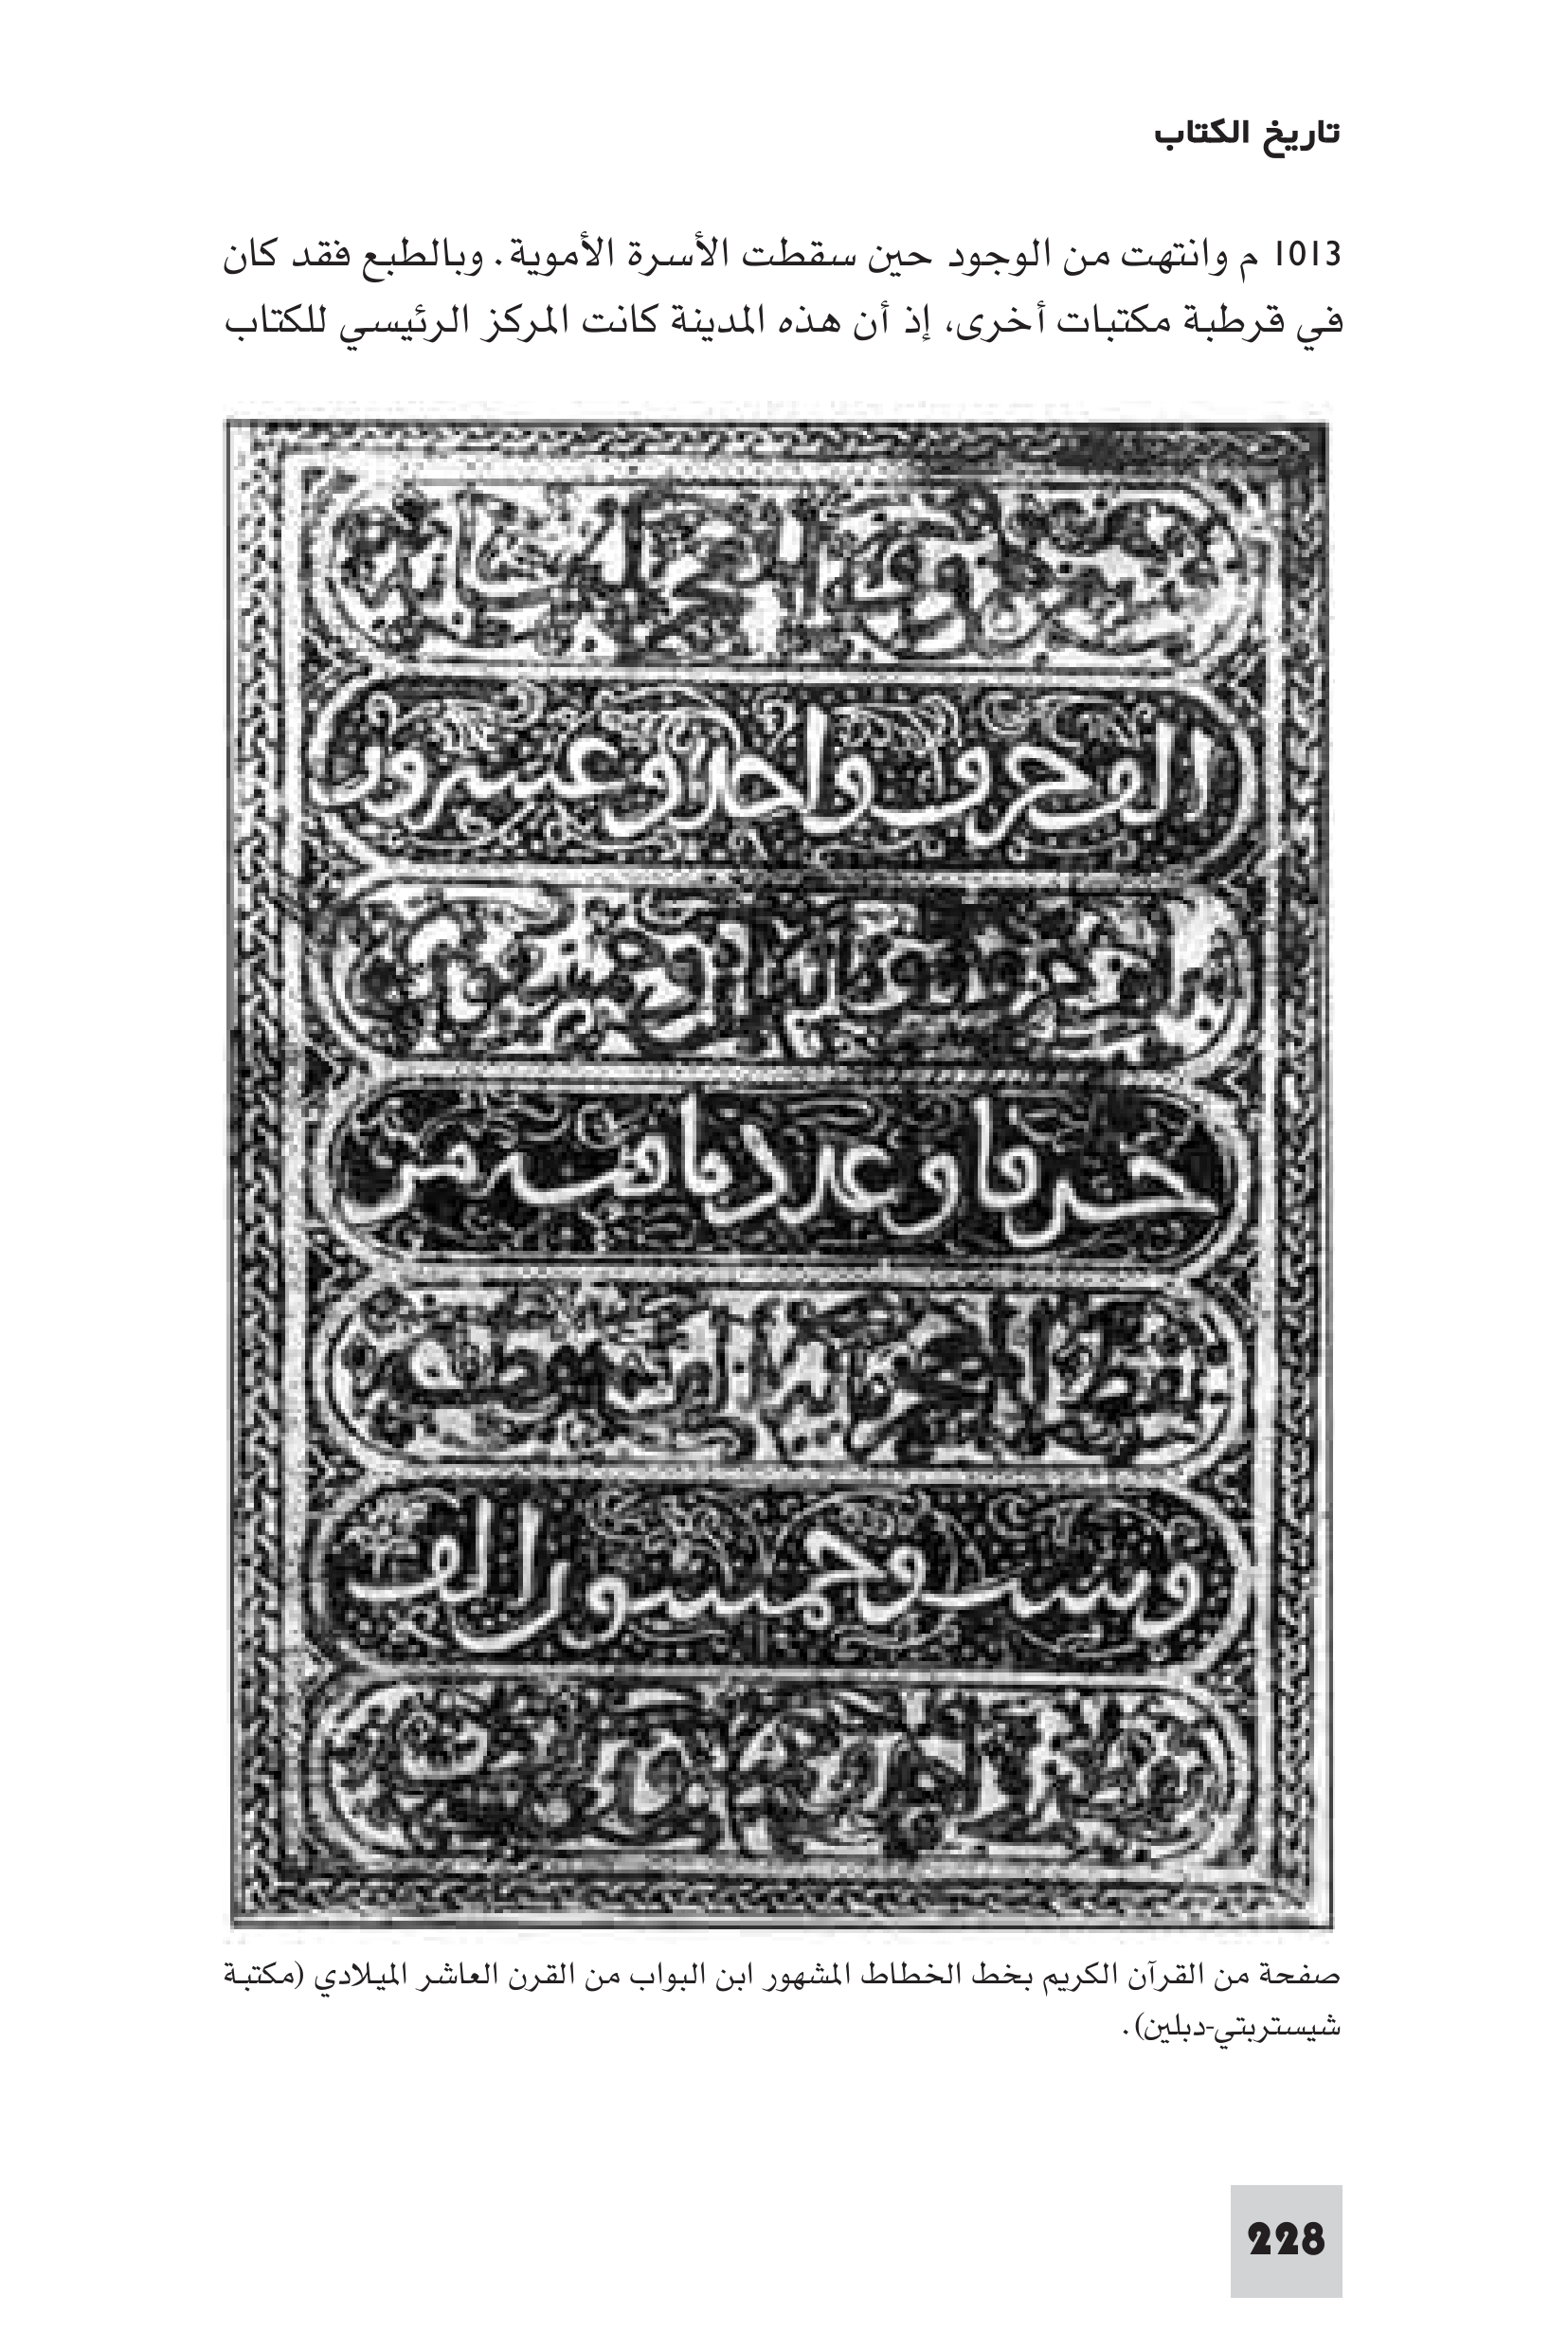 تاريخ الكتاب
1013 م وانتهت من الوجود حين سقطت الأسرة الأموية. وبالطبع فقد كان
في قرطبة مكتبات أخرى، إذ أن هذه المدينة كانت المركز الرئيسي للكتاب
الف حرف واحد وعشرون
حرفا وعدد ما فيه من
وست وخمسون الف
صفحة من القرآن الكريم بخط الخطاط المشهور ابن البواب من القرن العاشر الميلادي (مكتبة
شيستربتي-دبلين).
228